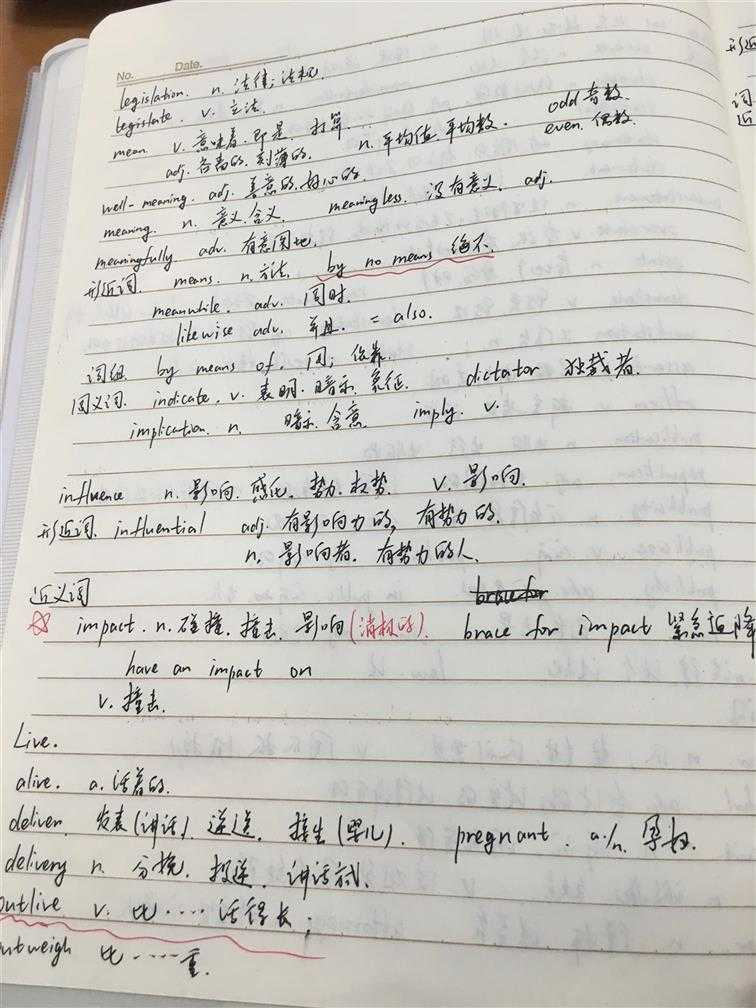 No. Date.
legislation. n. 法律; 法规.
legislate. v. 立法.
mean v. 意味着. 即是. 打算.... odd 奇数
adj. 吝啬的. 刻薄的. n. 平均值. 平均数. even. 偶数.
well-meaning. adj. 善意的. 好心的.
meaning. n. 意义. 含义. meaningless. 没有意义. adj.
meaningfully adv. 有意图地.
形近词. means. n. 方法. by no means 绝不.
meanwhile. adv. 同时.
likewise adv. 并且. = also.
词组 by means of. 用; 依靠.
同义词. indicate. v. 表明. 暗示. 象征. dictator 独裁者.
implication. n. 暗示. 含意. imply. v.
influence n. 影响. 感化. 势力. 权势. v. 影响.
形近词. influential adj. 有影响力的, 有势力的.
n. 影响者. 有势力的人.
近义词 brace for
☆ impact. n. 碰撞. 撞击. 影响(消极的). brace for impact 紧急迫降
have an impact on
v. 撞击.
Live.
alive. a. 活着的.
deliver. 发表(讲话) 递送. 接生(婴儿). pregnant. a./n. 孕妇.
delivery n. 分娩. 投递. 讲话方式.
outlive v. 比....活得长;
outweigh 比....重.
形近
词
近